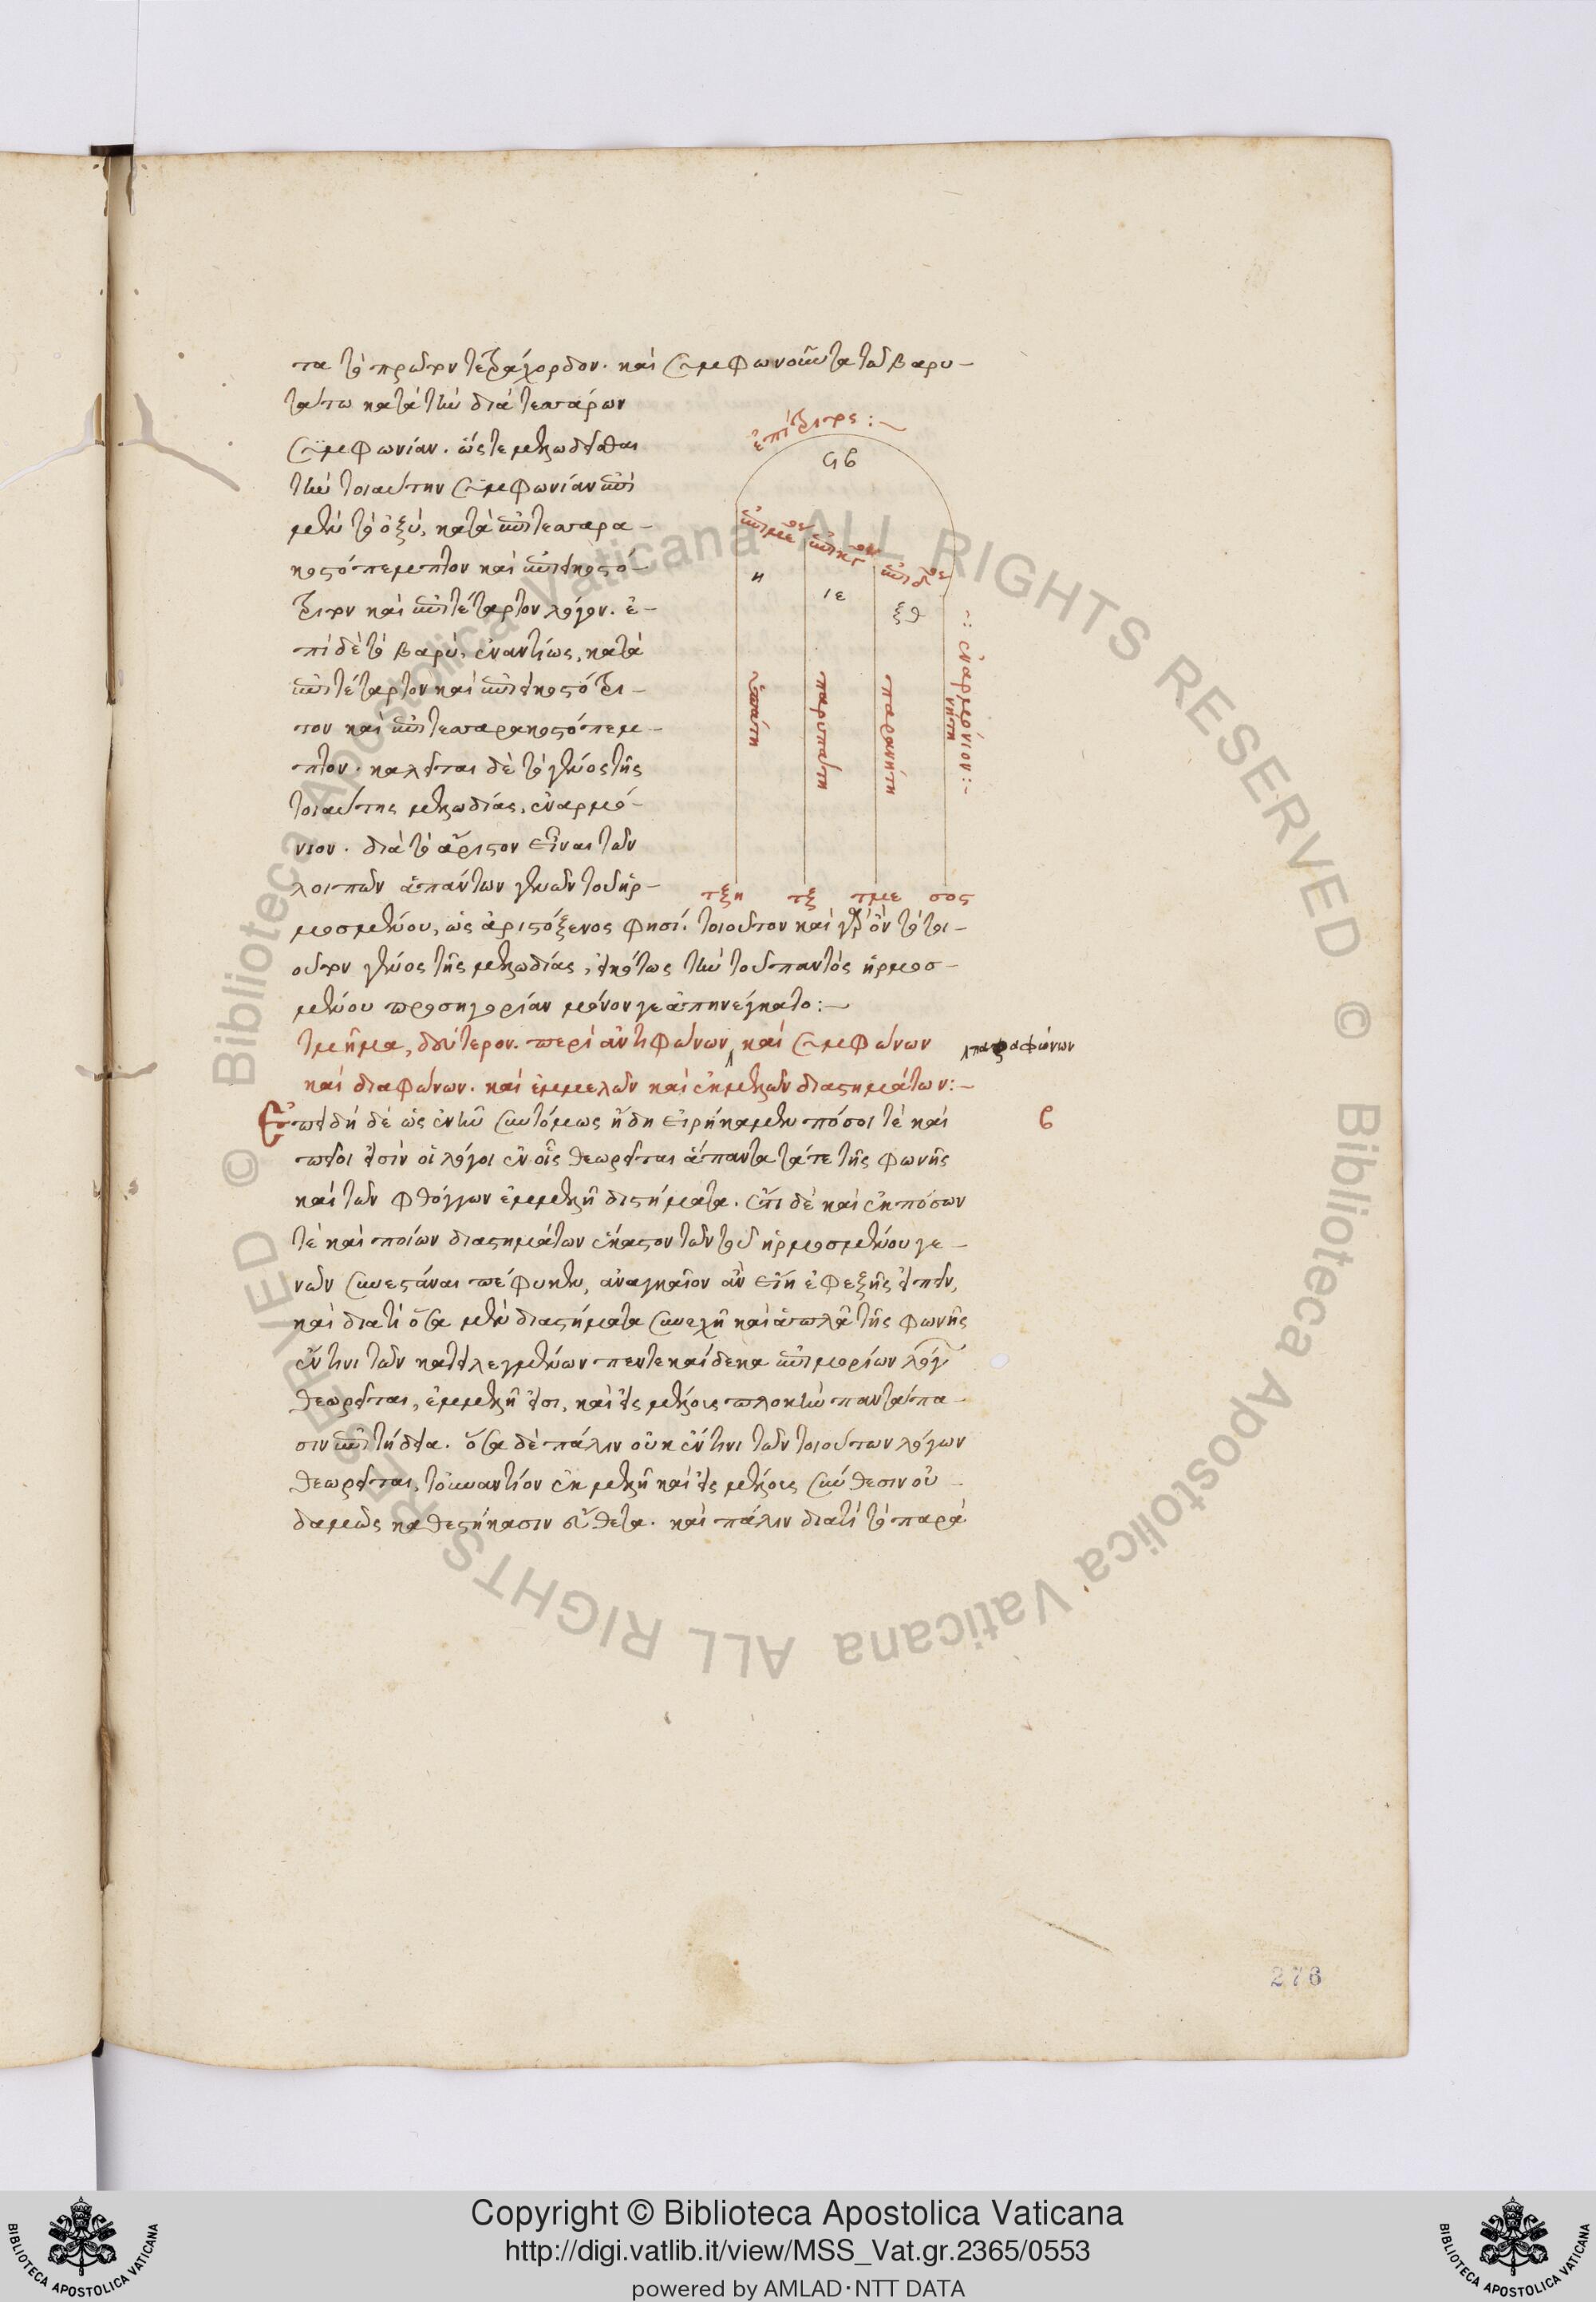 τα τὸ πρῶτον τετράχορδον. καὶ συμφωνοῦντα τῶ βαρυ-
τάτω κατὰ τὴν διὰ τεσσάρων
συμφωνίαν. ὥστε μελωδεῖσθαι
τὴν τοιαύτην συμφωνίαν ἐπὶ
μὲν τὸ ὀξὺ, κατὰ ἐπιτεσσαρα-
κοστόπεμπτον καὶ ἐπιεικοστό-
τριτον καὶ ἐπιτέταρτον λόγον. ἐ-
πὶ δὲ τὸ βαρὺ, ἐναντίως, κατὰ
ἐπιτέταρτον καὶ ἐπιεικοστότρι-
τον καὶ ἐπιτεσσαρακοστόπεμ-
πτον. καλεῖται δὲ τὸ γένος τῆς
τοιαύτης μελωδίας, ἐναρμό-
νιον. διὰ τὸ ἄριστον εἶναι τῶν
λοιπῶν ἁπάντων γενῶν τοῦ ἡρ-
μοσμένου, ὡς ἀριστόξενος φησί. τοιοῦτον καὶ γὰρ ὂν τὸ τοι-
οῦτον γένος τῆς μελωδίας, εἰκότως τὴν τοῦ παντὸς ἡρμοσ-
μένου προσηγορίαν μόνον γε ἀπηνέγκατο:~
ἐπίτριτος:~
ϟβ
ἐπιμεον ἐπικγον ἐπιδον
η ιε ξθ
ὑπάτη παρυπάτη παρανήτη νήτη
~: ἐναρμόνιον:~
τξη τξ τμε σος
τμῆμα, δεύτερον. περὶ ἀντιφώνων, καὶ συμφώνων
παραφώνων
καὶ διαφώνων. καὶ ἐμμελῶν καὶ ἐκμελῶν διαστημάτων:~
Ἐπειδὴ δὲ ὡς ἐνῆν συντόμως ἤδη εἰρήκαμεν πόσοι τὲ καὶ
β
ποῖοι εἰσὶν οἱ λόγοι ἐν οἷς θεωρεῖται ἅπαντα τά τε τῆς φωνῆς
καὶ τῶν φθόγγων ἐμμελῆ διστήματα. ἔτι δὲ καὶ ἐκ πόσων
τὲ καὶ ποίων διαστημάτων ἕκαστον τῶν τοῦ ἡρμοσμένου γε-
νῶν συνεστάναι πέφυκεν, ἀναγκαῖον ἂν εἴη ἐφεξῆς εἰπεῖν,
καὶ διατί ὅσα μὲν διαστήματα συνεχῆ καὶ ἁπλᾶ τῆς φωνῆς
ἔν τινι τῶν κατειλεγμένων πεντεκαίδεκα ἐπιμορίων λόγ
θεωρεῖται, ἐμμελῆ εἰσι, καὶ εἰς μέλους πλοκὴν παντάπα-
σιν ἐπιτήδεια. ὅσα δὲ πάλιν οὐκ ἔν τινι τῶν τοιούτων λόγων
θεωρεῖται, τοὐναντίον ἐκμελῆ καὶ εἰς μέλους σύνθεσιν οὐ-
δαμῶς καθεστήκασιν εὔθετα. καὶ πάλιν διατί τὸ παρὰ
276
Copyright © Biblioteca Apostolica Vaticana
http://digi.vatlib.it/view/MSS_Vat.gr.2365/0553
powered by AMLAD·NTT DATA
BIBLIOTECA APOSTOLICA VATICANA
BIBLIOTECA APOSTOLICA VATICANA
© Biblioteca Apostolica Vaticana ALL RIGHTS RESERVED © Biblioteca Apostolica Vaticana ALL RIGHTS RESERVED